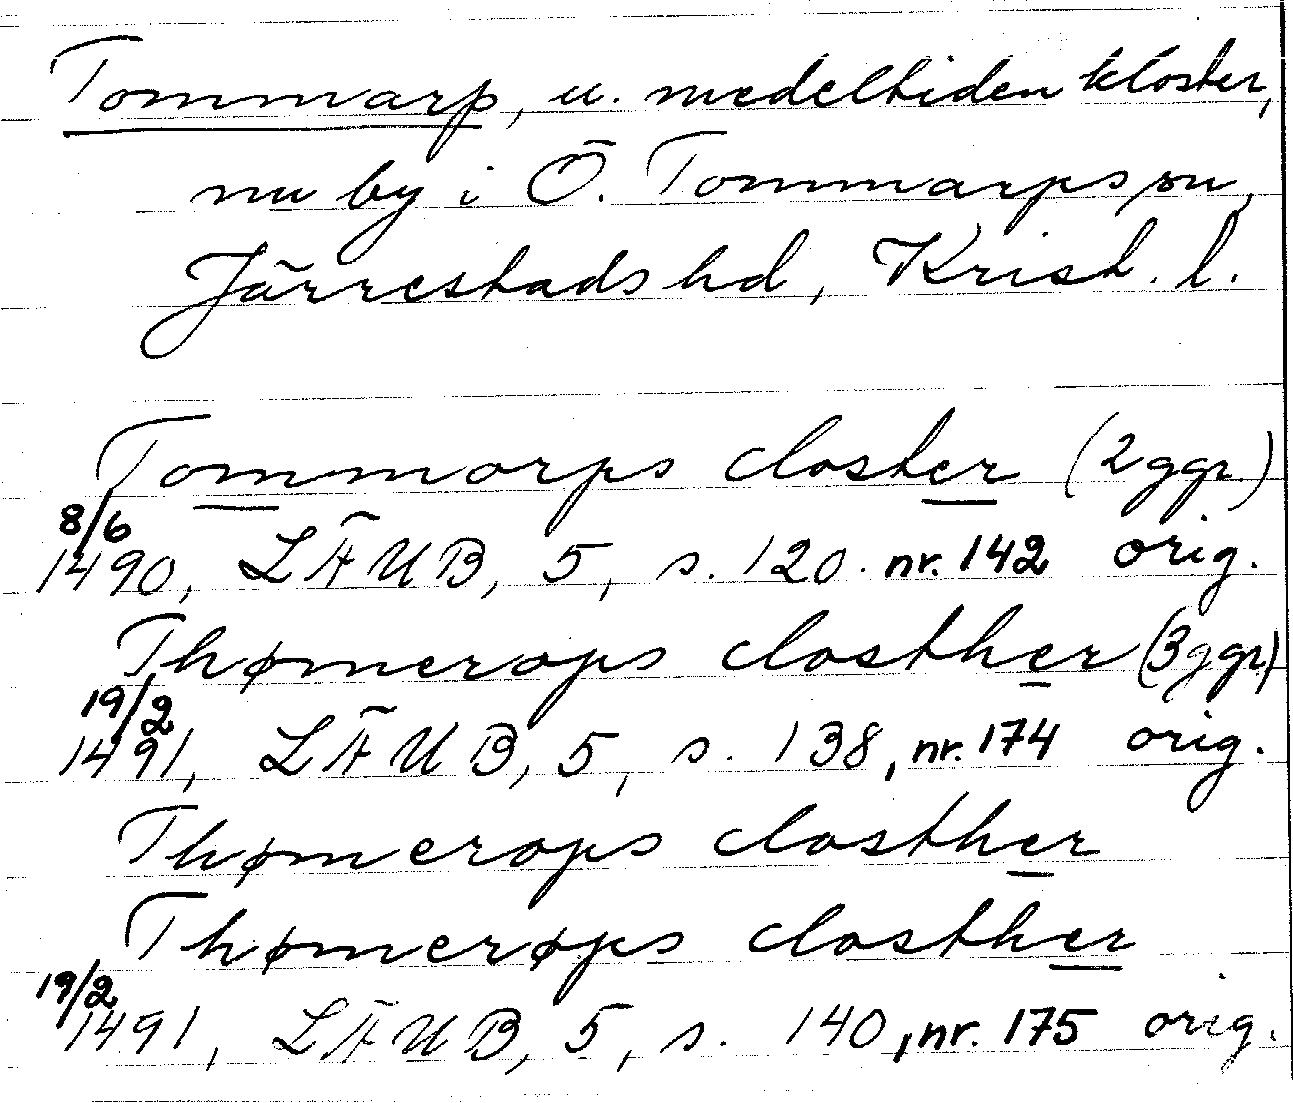 Tommarp, u. medeltiden kloster,
nu by i Ö. Tommarps sn,
Järrestads hd, Krist. l.
Tommorps closter (2 ggr)
8/6
1490, LÄUB, 5, s. 120. nr. 142 orig.
Thømerops closther (3 ggr)
19/2
1491, LÄUB, 5, s. 138, nr. 174 orig.
Thømerops closther
Thømerøps closther
19/2
1491, LÄUB, 5, s. 140, nr. 175 orig.